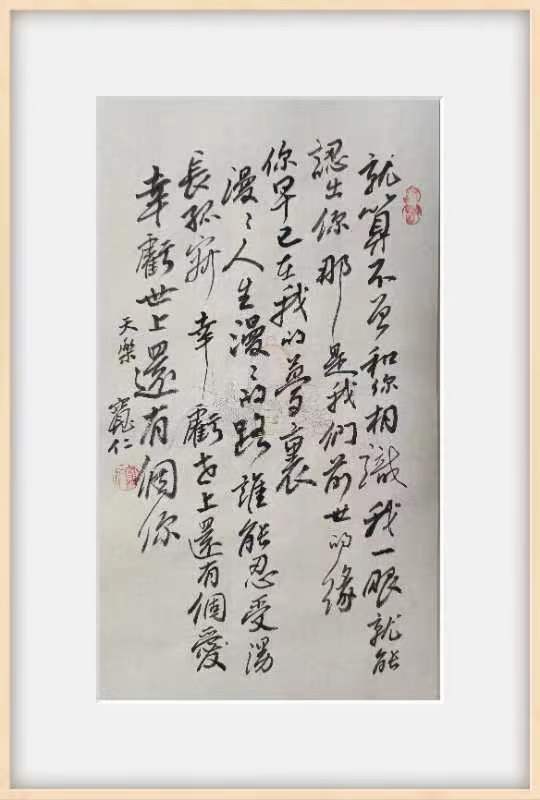 就算不曾和你相識我一眼就能
認出你那是我們前世的緣
你早已在我的夢裏
漫〻人生漫〻的路誰能忍受漫
長孤寂 幸虧世上還有個愛
幸虧世上還有個你
天樂 仁